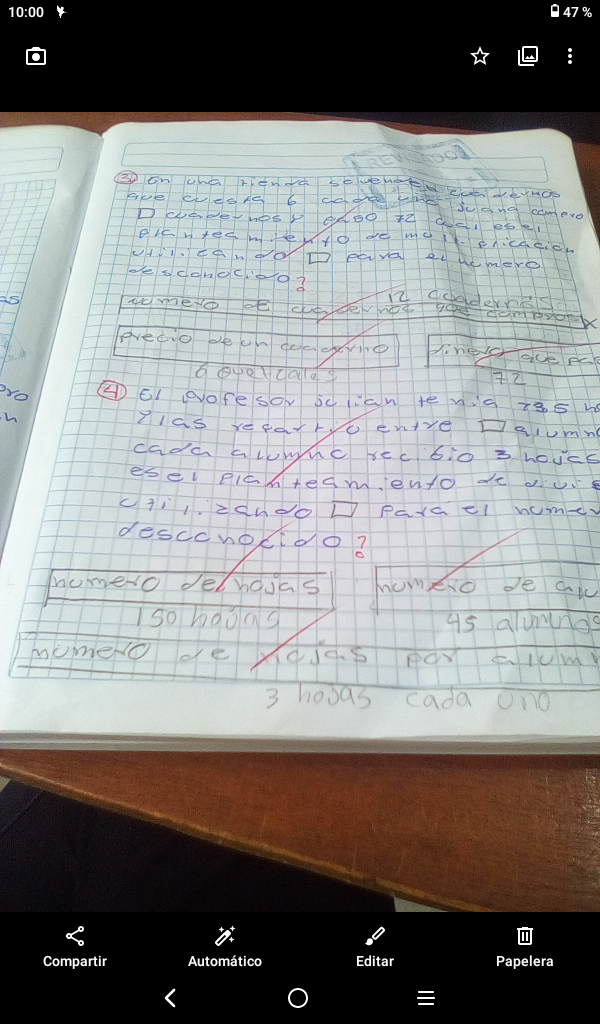 10:00
47 %
REVISADO
3) En una tienda se venden cuadernos
que cuesta 6 cada uno Juana compro
□ cuadernos y paso 72 cual es el
planteamiento de multiplicacion
utilizando □ para el numero
desconocido?
12 cuadernos
numero de cuadernos que compro
precio de un cuaderno
dinero que
6 quetzales
72
4) El profesor julian tenia 735
las repartio entre □
cada alumno recibio 3 hojas
es el planteamiento de
utilizando □ para el
desconocido?
numero de hojas
numero de
150 hojas
45 alumnos
numero de hojas por
3 hojas cada uno
Compartir
Automático
Editar
Papelera